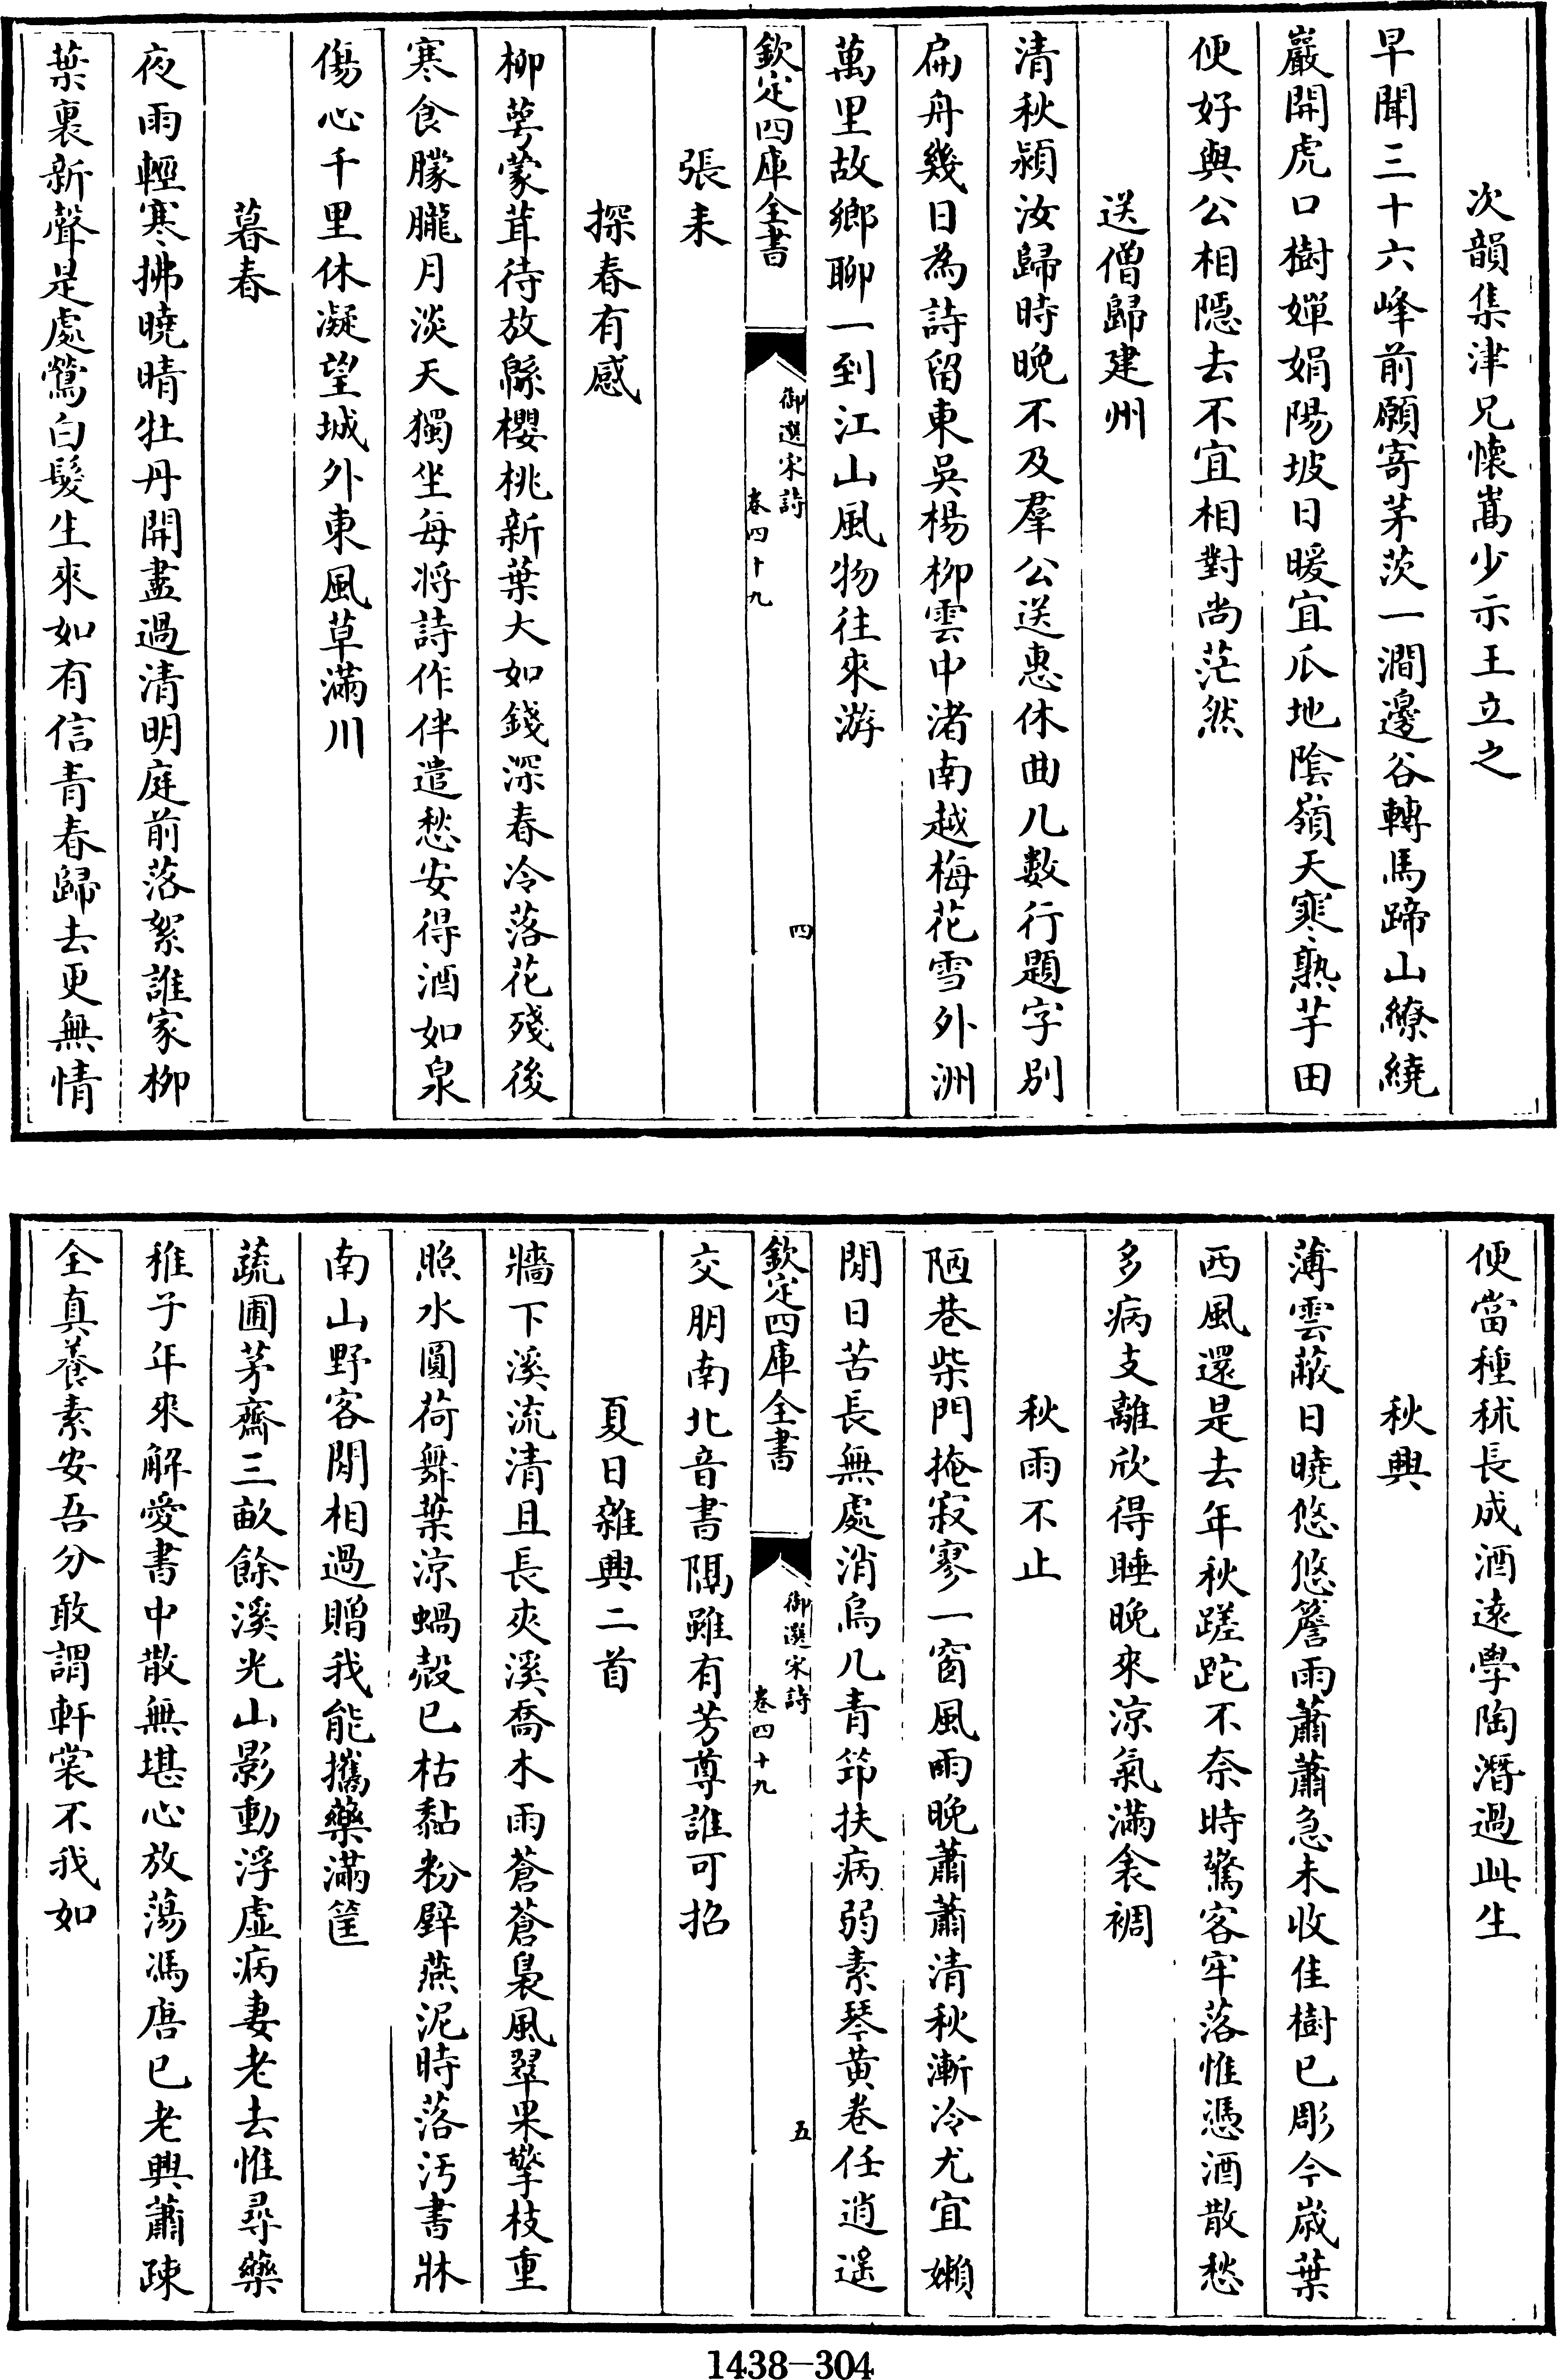 次韻集津兄懷嵩少示王立之
早聞三十六峰前願寄茅茨一澗邊谷轉馬蹄山繚繞
巖開虎口樹嬋娟陽坡日暖宜瓜地陰嶺天寒熟芋田
便好與公相隱去不宜相對尚茫然
送僧歸建州
清秋潁汝歸時晚不及羣公送惠休曲几數行題字別
扁舟幾日為詩留東吳楊柳雲中渚南越梅花雪外洲
萬里故鄉聊一到江山風物往來游
欽定四庫全書
御選宋詩
卷四十九
四
張耒
探春有感
柳萼蒙茸待放緜櫻桃新葉大如錢深春冷落花殘後
寒食朦朧月淡天獨坐每將詩作伴遣愁安得酒如泉
傷心千里休凝望城外東風草滿川
暮春
夜雨輕寒拂曉晴牡丹開盡過清明庭前落絮誰家柳
葉裏新聲是處鶯白髮生來如有信青春歸去更無情
便當種秫長成酒遠學陶潛過此生
秋興
薄雲蔽日曉悠悠簷雨蕭蕭急未收佳樹已彫今歲葉
西風還是去年秋蹉跎不奈時驚客牢落惟憑酒散愁
多病支離欣得睡晚來涼氣滿衾裯
秋雨不止
陋巷柴門掩寂寥一窗風雨晚蕭蕭清秋漸冷尤宜嬾
閒日苦長無處消烏几青笻扶病弱素琴黃卷任逍遙
欽定四庫全書
御選宋詩
卷四十九
五
交朋南北音書隔雖有芳尊誰可招
夏日雜興二首
牆下溪流清且長夾溪喬木雨蒼蒼裊風翠果擎枝重
照水圓荷舞葉涼蝸殼已枯黏粉壁燕泥時落汚書牀
南山野客閒相過贈我能攜藥滿筐
蔬圃茅齋三畝餘溪光山影動浮虛病妻老去惟尋藥
稚子年來解愛書中散無堪心放蕩馮唐已老興蕭疎
全真養素安吾分敢謂軒裳不我如
1438-304